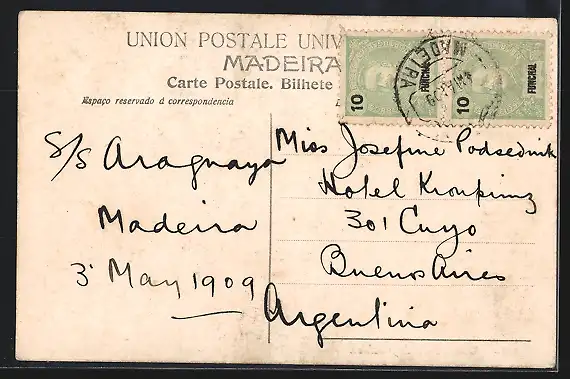 UNION POSTALE UNIV
MADEIRA
Carte Postale. Bilhete
Espaço reservado á correspondencia
10
FUNCHAL
10
FUNCHAL
MADEIRA
S/S Araguaya
Madeira
3 May 1909
Miss Josefine Podsednik
Hotel Kronprinz
301 Cuyo
Buenos Aires
Argentina